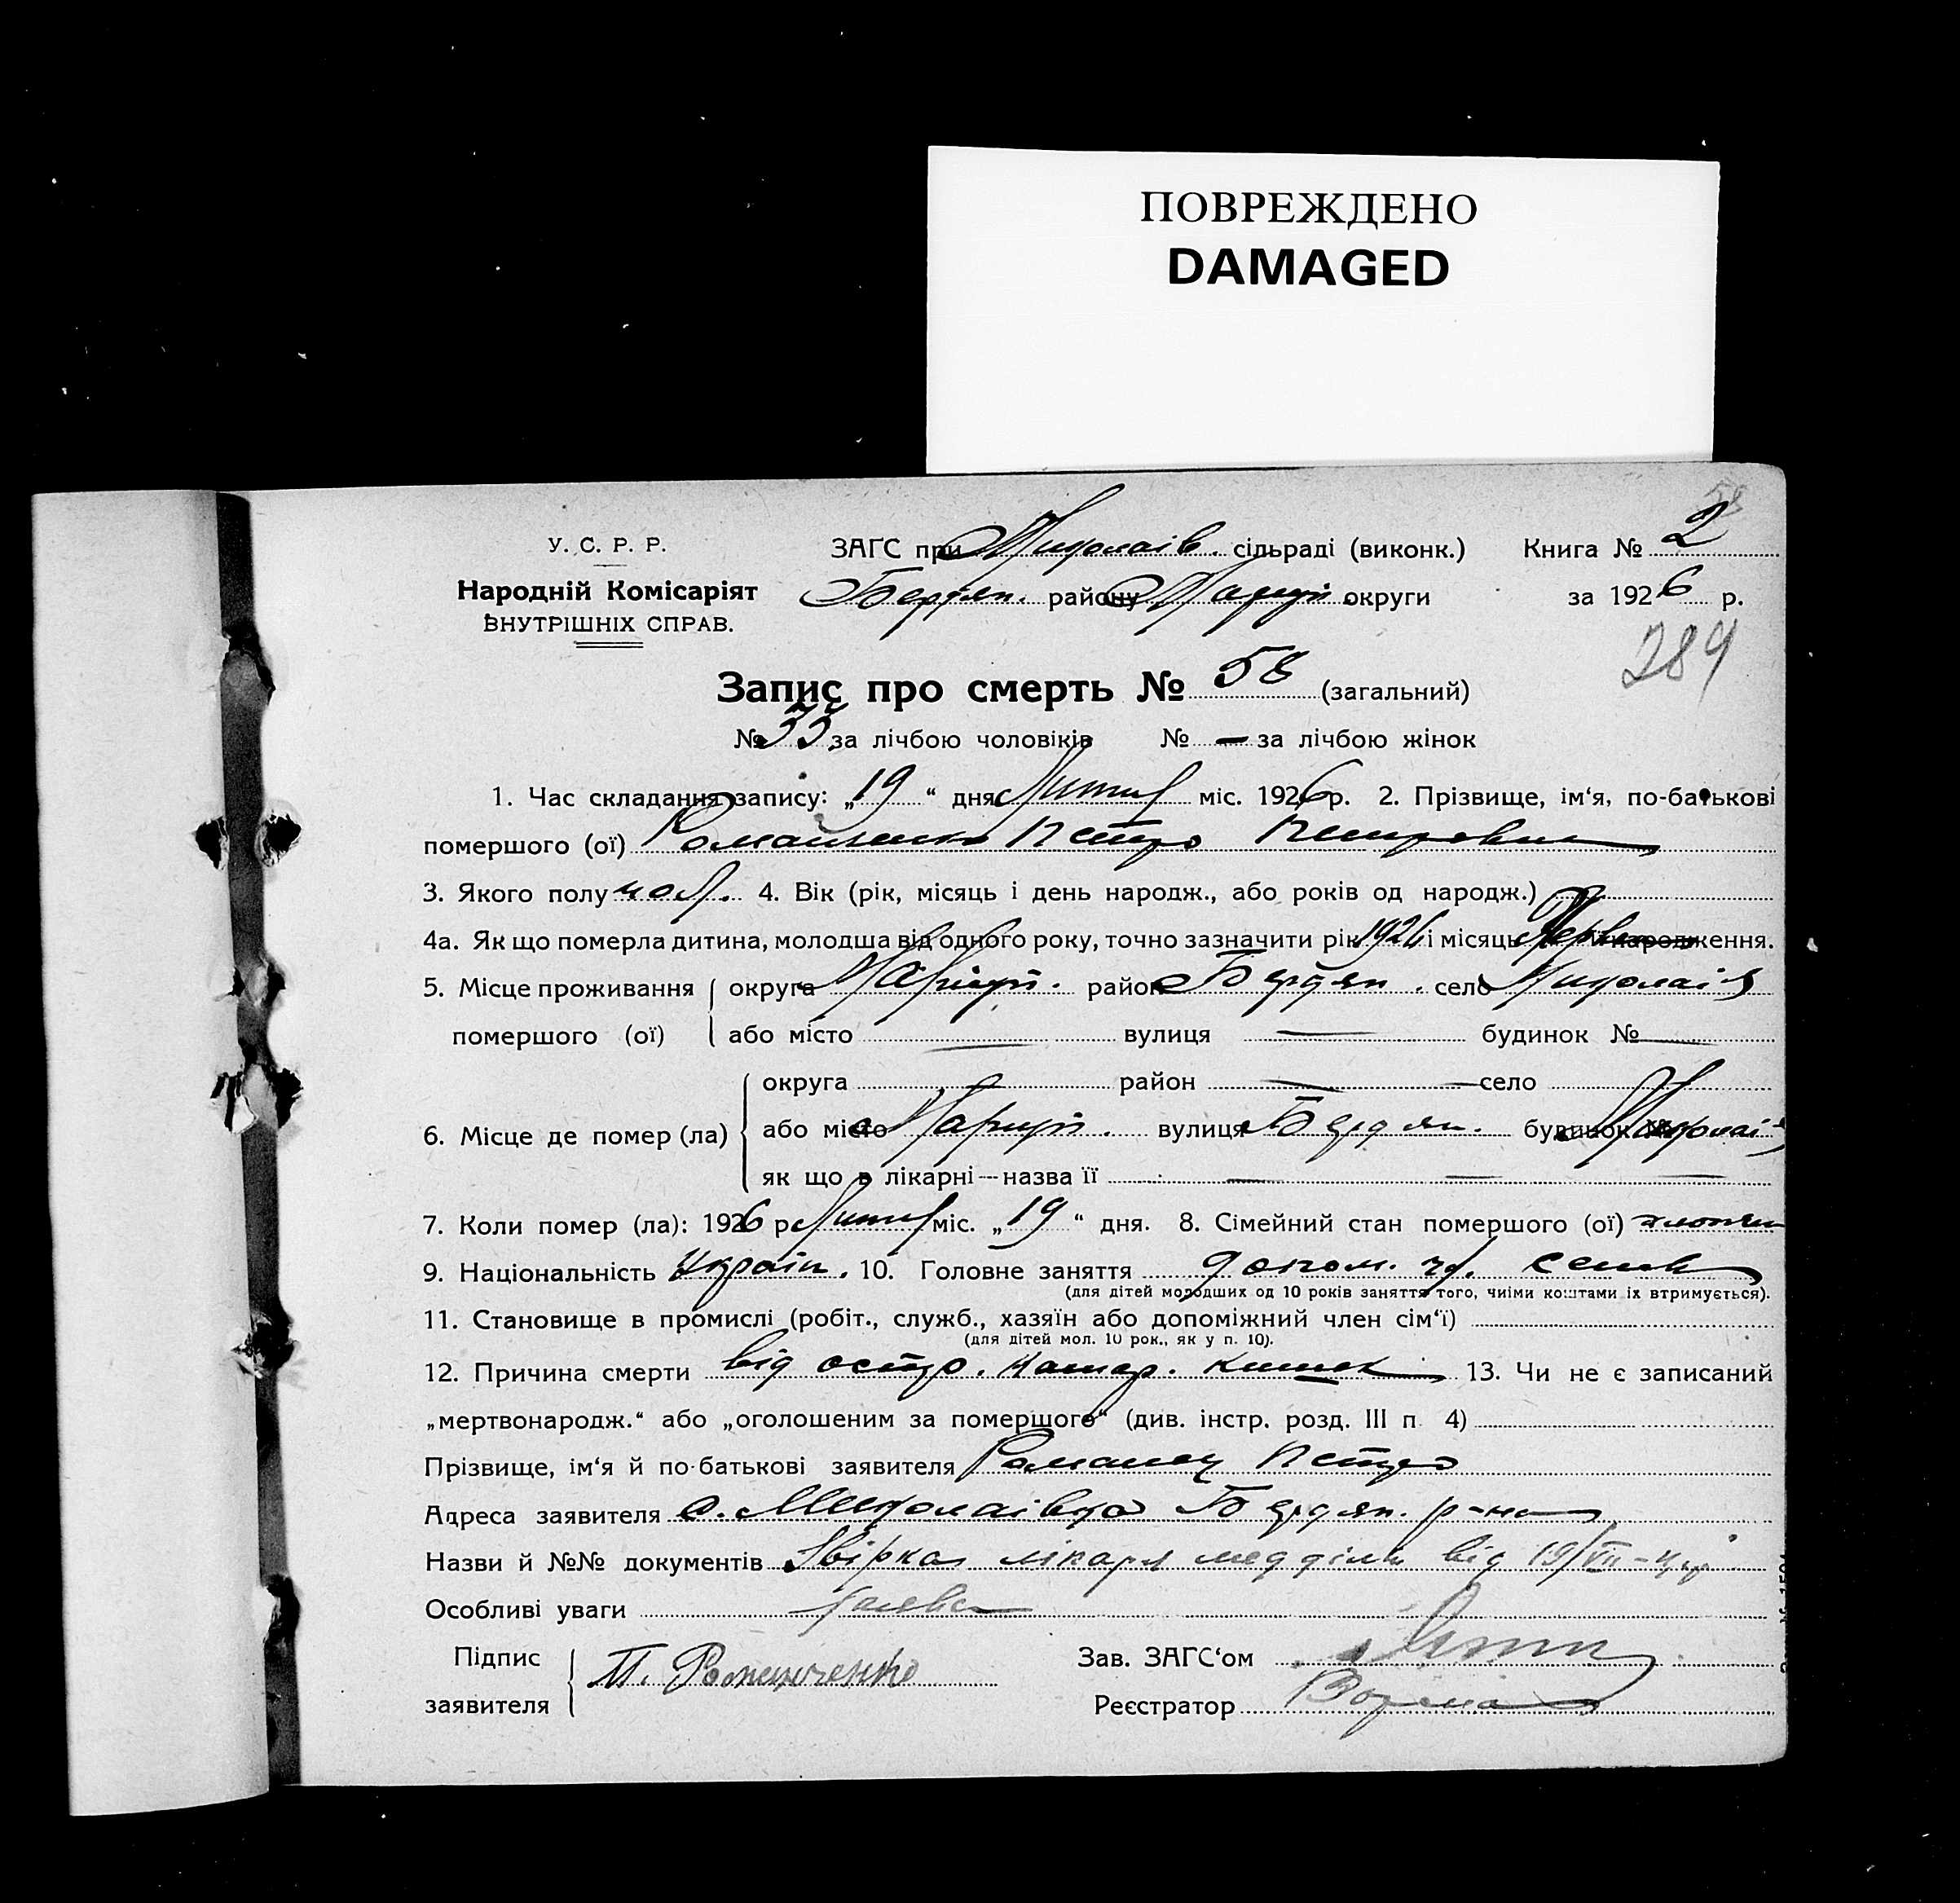 ПОВРЕЖДЕНО
DAMAGED
58
У. С. Р. Р.
Народній Комісаріят
ВНУТРІШНІХ СПРАВ.
ЗАГС при Миколаїв. сільраді (виконк.) Книга № 2
Бердян. району Маріуп округи за 1926 р.
284
Запис про смерть № 58 (загальний)
№ 35 за лічбою чоловіків № — за лічбою жінок
1. Час складання запису: „19“ дня Липня міс. 1926 р. 2. Прізвище, ім‘я, по-батькові
помершого (ої) Романенко Петро Петрович
3. Якого полу чол. 4. Вік (рік, місяць і день народж., або років од народж.)
4а. Як що померла дитина, молодша від одного року, точно зазначити рік 1926 і місяць Червня народження.
5. Місце проживання округа Маріюп. район Бердян. село Миколаїв
помершого (ої) або місто — вулиця — будинок № —
6. Місце де помер (ла) округа район — село
або місто Маріуп. вулиця Бердян. будинок № Миколаїв
як що в лікарні—назва її — — —
7. Коли помер (ла): 1926 р. Липня міс. „19“ дня. 8. Сімейний стан помершого (ої) хлопчик
9. Національність Україн. 10. Головне заняття допом. чл. семї
(для дітей молодших од 10 років заняття того, чиїми коштами їх втримується).
11. Становище в промислі (робіт., служб., хазяїн або допоміжний член сім‘ї)
(для дітей мол. 10 рок., як у п. 10).
12. Причина смерти від остро. катар. кишек 13. Чи не є записаний
„мертвонародж.“ або „оголошеним за помершого“ (див. інстр. розд. III п 4)
Прізвище, ім‘я й по-батькові заявителя Романец Петро
Адреса заявителя с. Миколаївка Бердян. р-на
Назви й №№ документів лікаря від 19/VII
Особливі уваги
Підпис заявителя П. Романченко
Зав. ЗАГС‘ом
Реєстратор